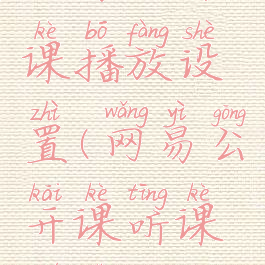 kè bō fàng shè
课播放设
zhì wǎng yì gōng
置(网易公
kāi kè tīng kè
开课听课